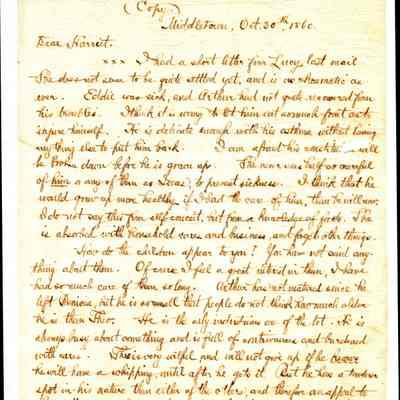 (Copy.)
Middletown, Oct. 30th, 1860.
Dear Harriet.
x x x I had a short letter from Lucy last mail
She does not seem to be quite settled yet, and is as rheumatic as
ever. Eddie was sick, and Arthur had not quite recovered from
his troubles. I think it is wrong to let him eat so much fruit as to
injure himself. He is delicate enough with his asthma, without having
anything else to put him back. I am afraid his constitution will
be broken down before he is grown up. She never was half so careful
of him or any of them as I was, to prevent sickness. I think that he
would grow up more healthy if I had the care of him, than he will now.
I do not say this from self-conceit, but from a knowledge of facts. She
is absorbed with household cares and business, and forgets other things.
How do the children appear to you? You have not said any-
thing about them. Of course I feel a great interest in them, I have
had so much care of them so long. Arthur has not matured since he
left, but he is so small that people do not think how much older
he is than Theo. He is the most industrious one of the lot. He is
always busy about something and is full of contrivances and burdened
with cares. Theo is very wilful and will not give up if he
he will have a whipping, until after he gets it. But he has a tender
spot in his nature than either of the others, and therefore an appeal to